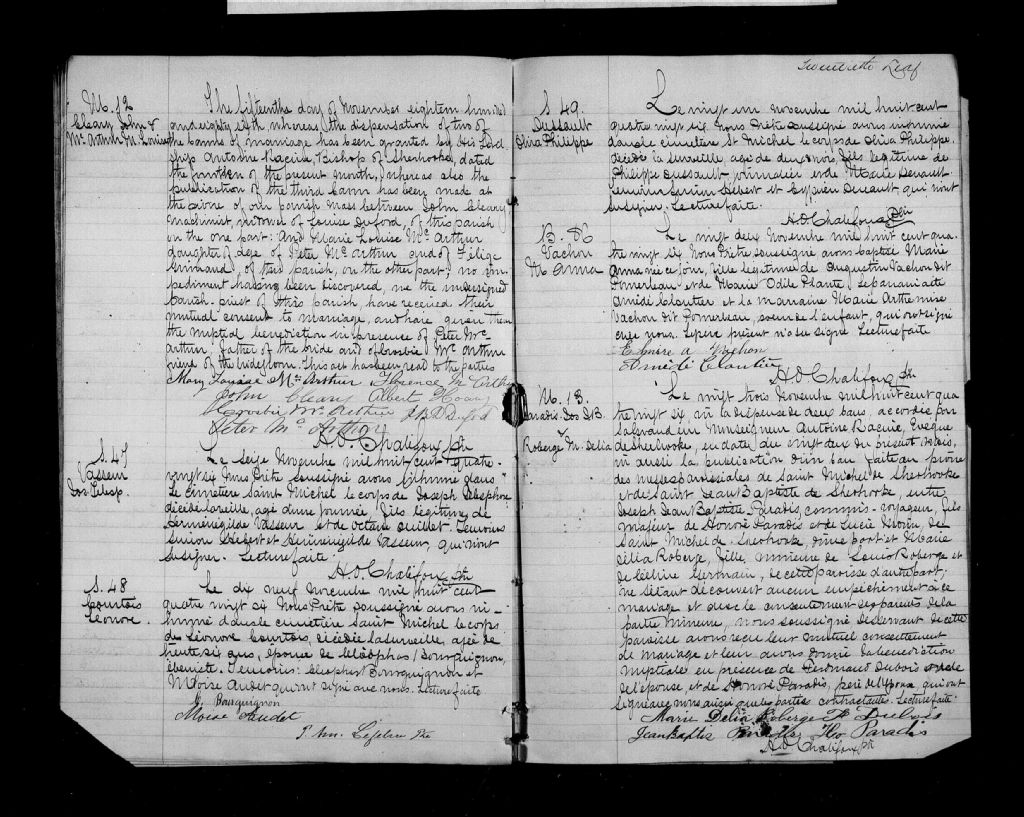 M. 12
Cleary John &
Mc Arthur M. Louise
The fifteenth day of November eighteen hundred
and eighty sixth whereas the dispensation of two of
the banns of marriage has been granted by His Lord
ship Antoine Racine Bishop of Sherbrooke, dated
the of the present month, whereas also the
publication of the third bann has been made at
the prone of our parish mass between John Cleary
machinist, widower of Louise Duford, of this parish
on the one part: And Marie Louise Mc Arthur
daughter of age of Peter Mc Arthur and of
of this parish, on the other part; no im-
pediment having been discovered, we the undersigned
parish-priest of this parish have received their
mutual consent to marriage, and have given them
the nuptial benediction in presence of Peter Mc
Arthur, father of the bride and of Crosbie Mc Arthur
friend of the bridegroom. This act has been read to the parties
Mary Louise Mc Arthur Florence Mc Arthur
John Cleary Albert
Crosbie Mc Arthur
Peter Mc Arthur
H. O. Chalifoux ptr
S. 47
Vasseur
Jos Telesp.
Le seize Novembre mil huit cent quatre-
vingt six Nous Prêtre soussigné avons inhumé dans
le cimetière Saint Michel le corps de Joseph Telesphore
décédé la veille, agé d'une journée, fils légitime de
Herménégilde Vasseur et de Octavie Ouillet. Témoins
Simion Hébert et Herménégilde Vasseur, qui n'ont
su signer. Lecture faite.
H. O. Chalifoux ptr
S. 48
Courtois
Léonore.
Le dix neuf Novembre mil huit cent
quatre vingt six Nous Prêtre soussigné avons in-
humé dans le cimetière Saint Michel le corps
de Léonore Courtois, décédée la surveille, agée de
trente six ans, épouse de Téléophas Bourguignon,
ébeniste. Témoins: Télesphore Bourguignon et
Moïse Audet qui ont signé avec nous. Lecture faite
Bourguignon
Moise Audet
Lefebvre Ptr
Leaf
S 49
Dussault
Oliva Philippe
Le vingt un novembre mil huit cent
quatre vingt six Nous Prêtre soussigné avons inhumé
dans le cimetière St Michel le corps de Oliva Philippe
décédé la surveille, agé de deux mois, fils légitime de
Philippe Dussault, journalier et de Marie
Témoins Simion Hébert et Cyprien Dussault qui n'ont
su signer. Lecture faite.
H. O. Chalifoux Ptr
B. 86
Vachon
M Anna
Le vingt deux Novembre mil huit cent qua
tre vingt six Nous Prêtre soussigné avons baptisé Marie
Anna née ce jour, fille légitime de Augustin Vachon dit
Pomerleau et de Marie Odile Plante, Le parrain a été
Amédé Cloutier et la marraine Marie Arthemise
Vachon dit Pomerleau, soeur de l'enfant, qui ont signé
avec nous. Le père présent n'a su signé Lecture faite
Vachon
Amédé Cloutier
H. O. Chalifoux Ptr
M. 13.
Paradis Jos J.B.
&
Roberge M. Delia
Le vingt trois Novembre mil huit cent qua
tre vingt six, vu la dispense de deux bans, accordée par
Sa Grandeur Monseigneur Antoine Racine, Evêque
de Sherbrooke, en date du vingt deux du présent mois,
vu aussi la publication d'un ban faite au prône
des messes paroissiales de Saint Michel de Sherbrooke
et de Saint Jean Baptiste de Sherbrooke, entre
Joseph Jean Baptiste Paradis, commis-voyageur, fils
majeur de Honoré Paradis et de Lucie de
Saint Michel de Sherbrooke, d'une part et Marie
Délia Roberge, fille mineure de Louis Roberge et
de Germain, de cette paroisse d'autre part;
ne s'étant découvert aucun empêchement à ce
mariage et avec le consentement des parents de la
partie mineure, nous soussigné Desservant de cette
paroisse avons reçu leur mutuel consentement
de mariage et leur avons donné la bénédiction
nuptiale en présence de Ferdinand Dubois oncle
de l'épouse, et de Honoré Paradis, père de l'époux qui ont
signé avec nous ainsi que les parties contractantes. Lecture faite.
Marie Delia Roberge F Dubois
Jean Baptis Paradis Ho Paradis
H. O. Chalifoux ptr